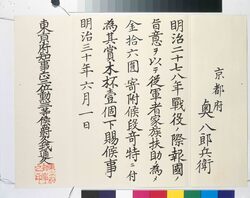 京都府
奥八郎兵衛
明治二十七八年戦役ノ際報國ノ
旨意ヲ以テ従軍者家族扶助ノ為メ
金拾六圓寄附候段奇特ニ付
為其賞木杯壹個下賜候事
明治三十年六月一日
東京府知事正三位勲三等侯爵